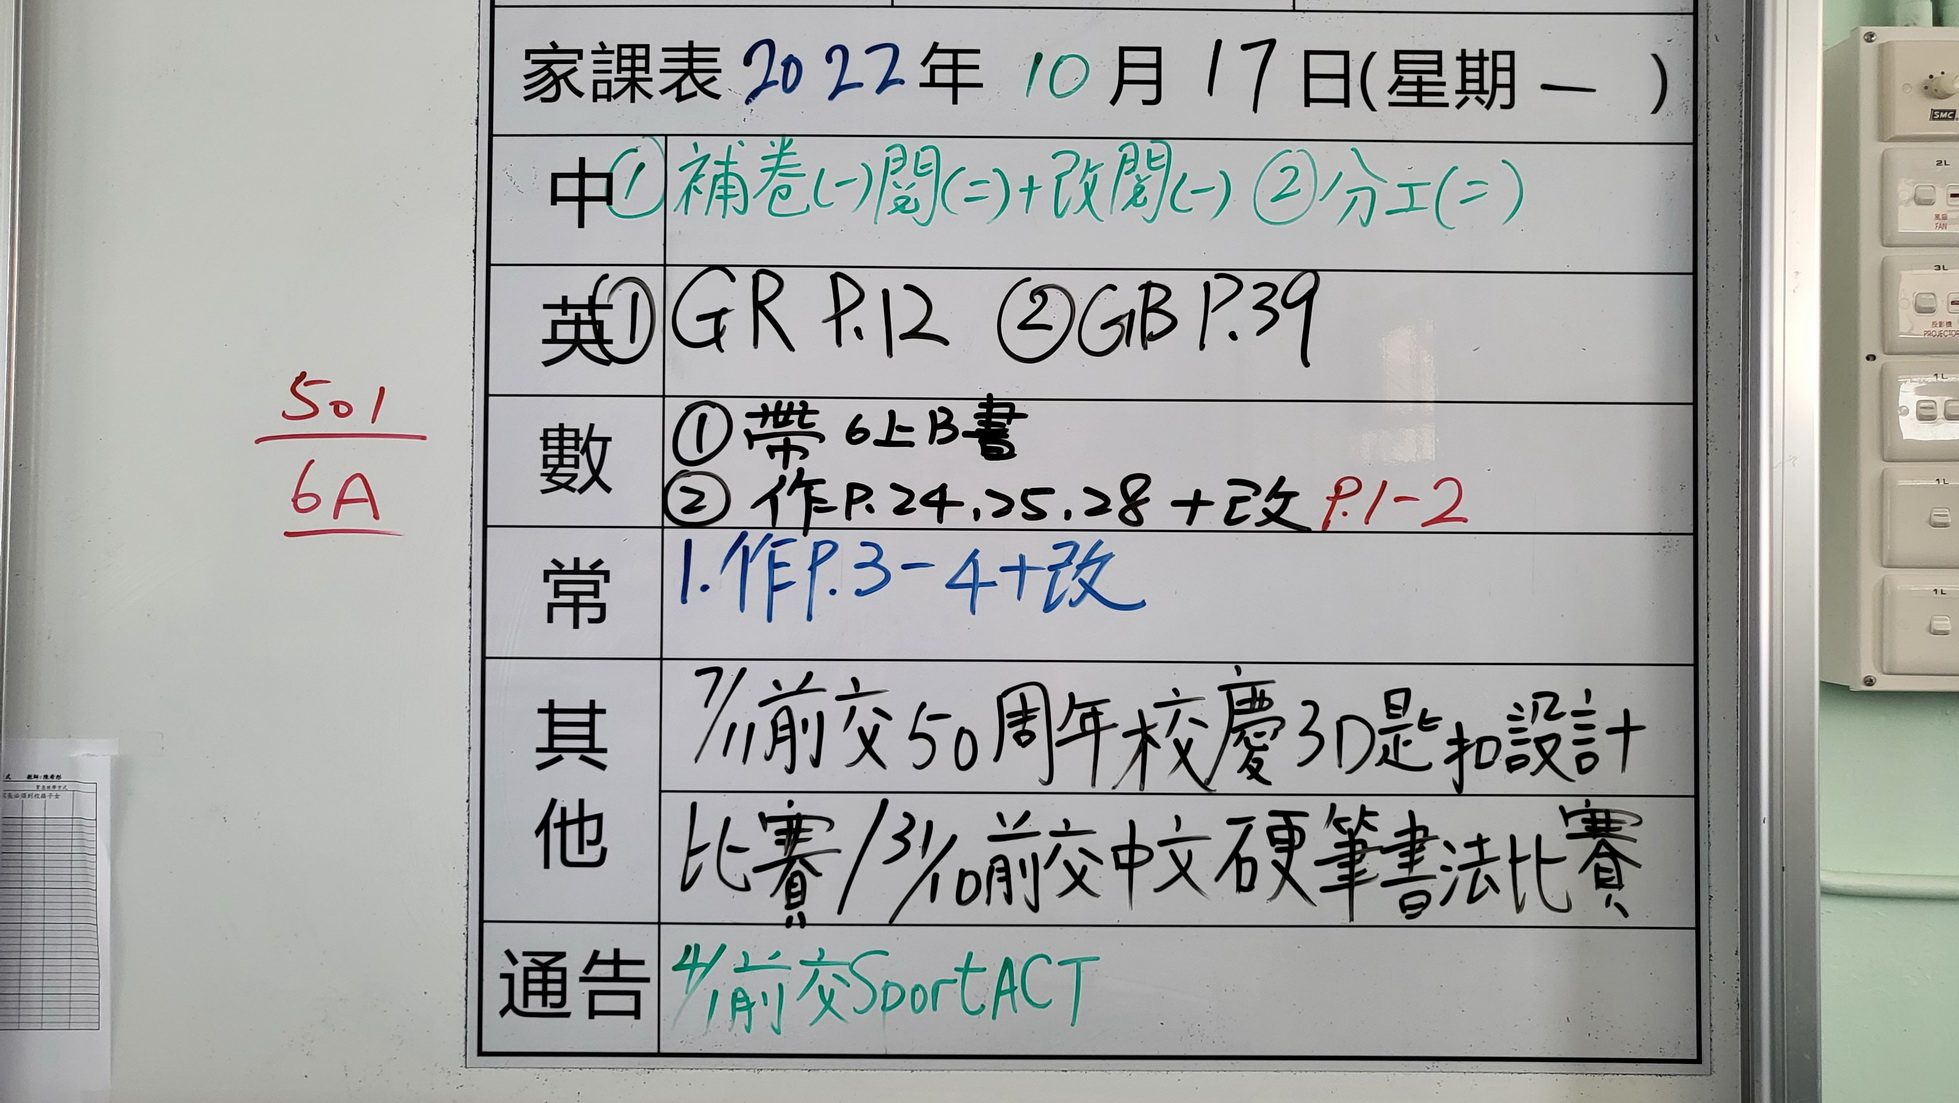 家課表2022年 10月17日(星期一 )
中①補卷(一)閱(二)+改閱(一) ②分工(二)
英①GR P.12 ②GB P.39
數
①帶6上B書
②作P.24,25,28+改P.1-2
常 1.作P.3-4+改
其他
7/11前交50周年校慶3D匙扣設計
比賽/31/10前交中文硬筆書法比賽
通告 4/1前交SportACT
501
6A
SMC
2L
風扇
FAN
3L
投影機
PROJECTOR
1L
1L
1L